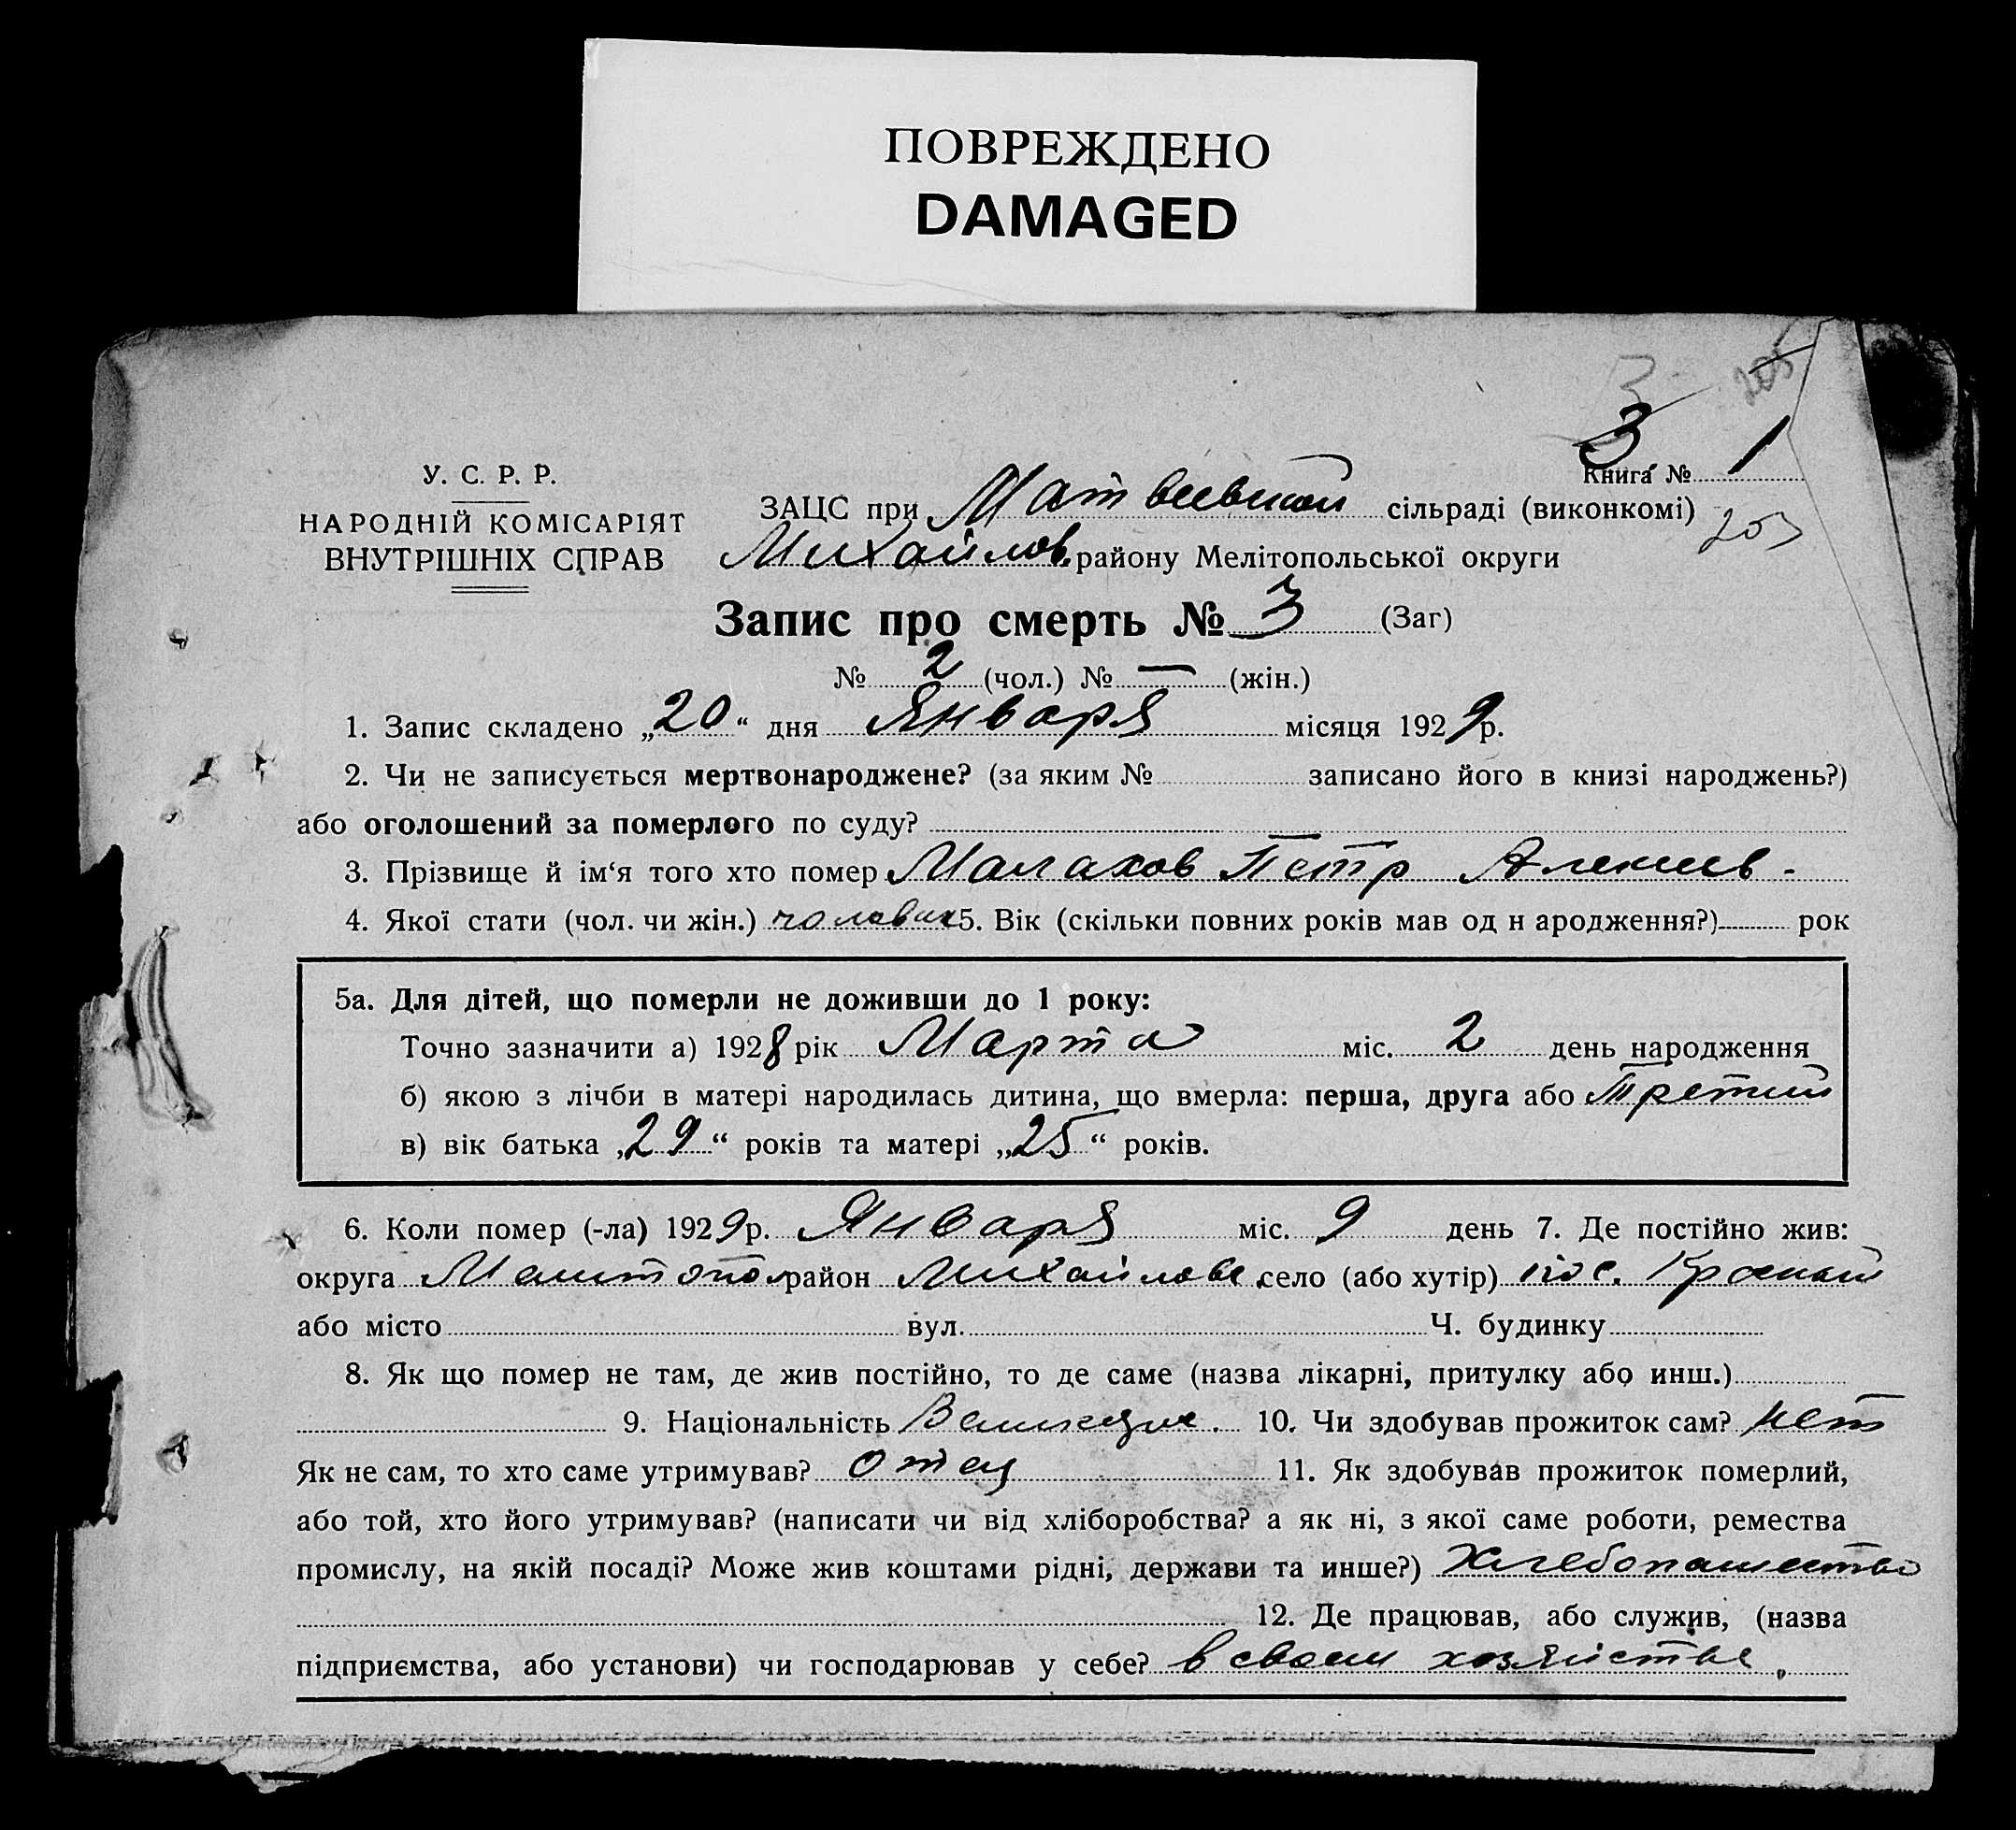 ПОВРЕЖДЕНО
DAMAGED
3 205
3 1
Книга №
У. С. Р. Р.
НАРОДНІЙ КОМІСАРІЯТ
ВНУТРІШНІХ СПРАВ
ЗАЦС при Матвеевской сільраді (виконкомі)
203
Михайлов. району Мелітопольської округи
Запис про смерть № 3 (Заг)
№ 2 (чол.) № — (жін.)
1. Запис складено „20“ дня Января місяця 1929р.
2. Чи не записується мертвонароджене? (за яким № записано його в книзі народжень?)
або оголошений за померлого по суду?
3. Прізвище й ім‘я того хто помер Малахов Петр Алексеев.
4. Якої стати (чол. чи жін.) чоловик 5. Вік (скільки повних років мав од н ародження?) рок
5а. Для дітей, що померли не доживши до 1 року:
Точно зазначити а) 1928 рік Марта міс. 2 день народження
б) якою з лічби в матері народилась дитина, що вмерла: перша, друга або Третий
в) вік батька „29“ років та матері „25“ років.
6. Коли помер (-ла) 1929р. Января міс. 9 день 7. Де постійно жив:
округа район Михайлов село (або хутір) пос.
або місто вул. Ч. будинку
8. Як що помер не там, де жив постійно, то де саме (назва лікарні, притулку або инш.)
9. Національність 10. Чи здобував прожиток сам? нет
Як не сам, то хто саме утримував? отец 11. Як здобував прожиток померлий,
або той, хто його утримував? (написати чи від хліборобства? а як ні, з якої саме роботи, ремества
промислу, на якій посаді? Може жив коштами рідні, держави та инше?) Хлебопашество
12. Де працював, або служив, (назва
підприємства, або установи) чи господарював у себе? в своем хозяйстве.